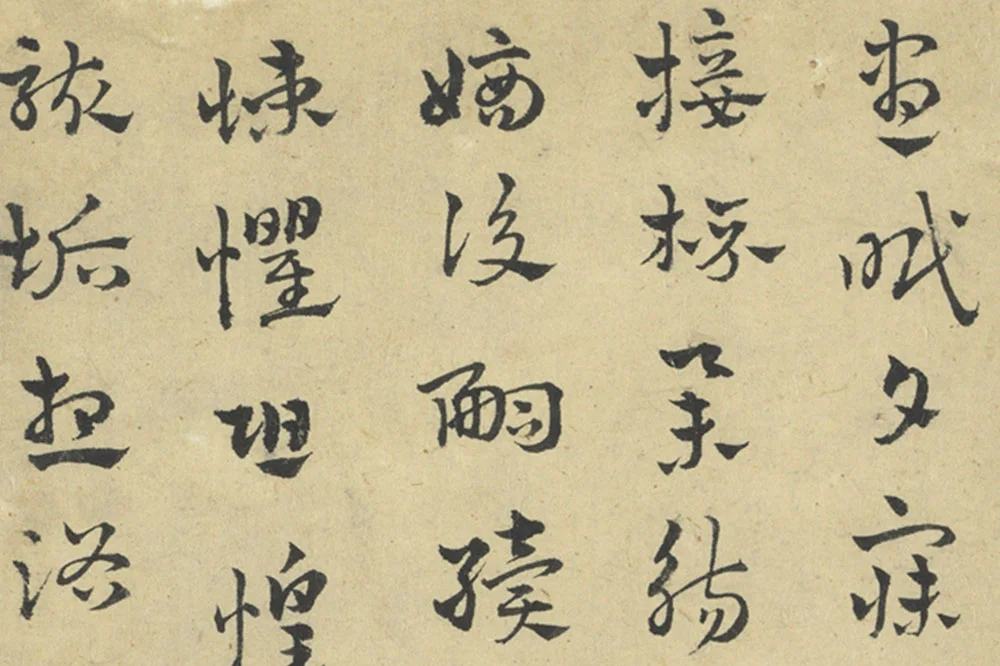 晝眠夕寐
接杯舉觴
嫡後嗣續
悚懼恐惶
骸垢想浴